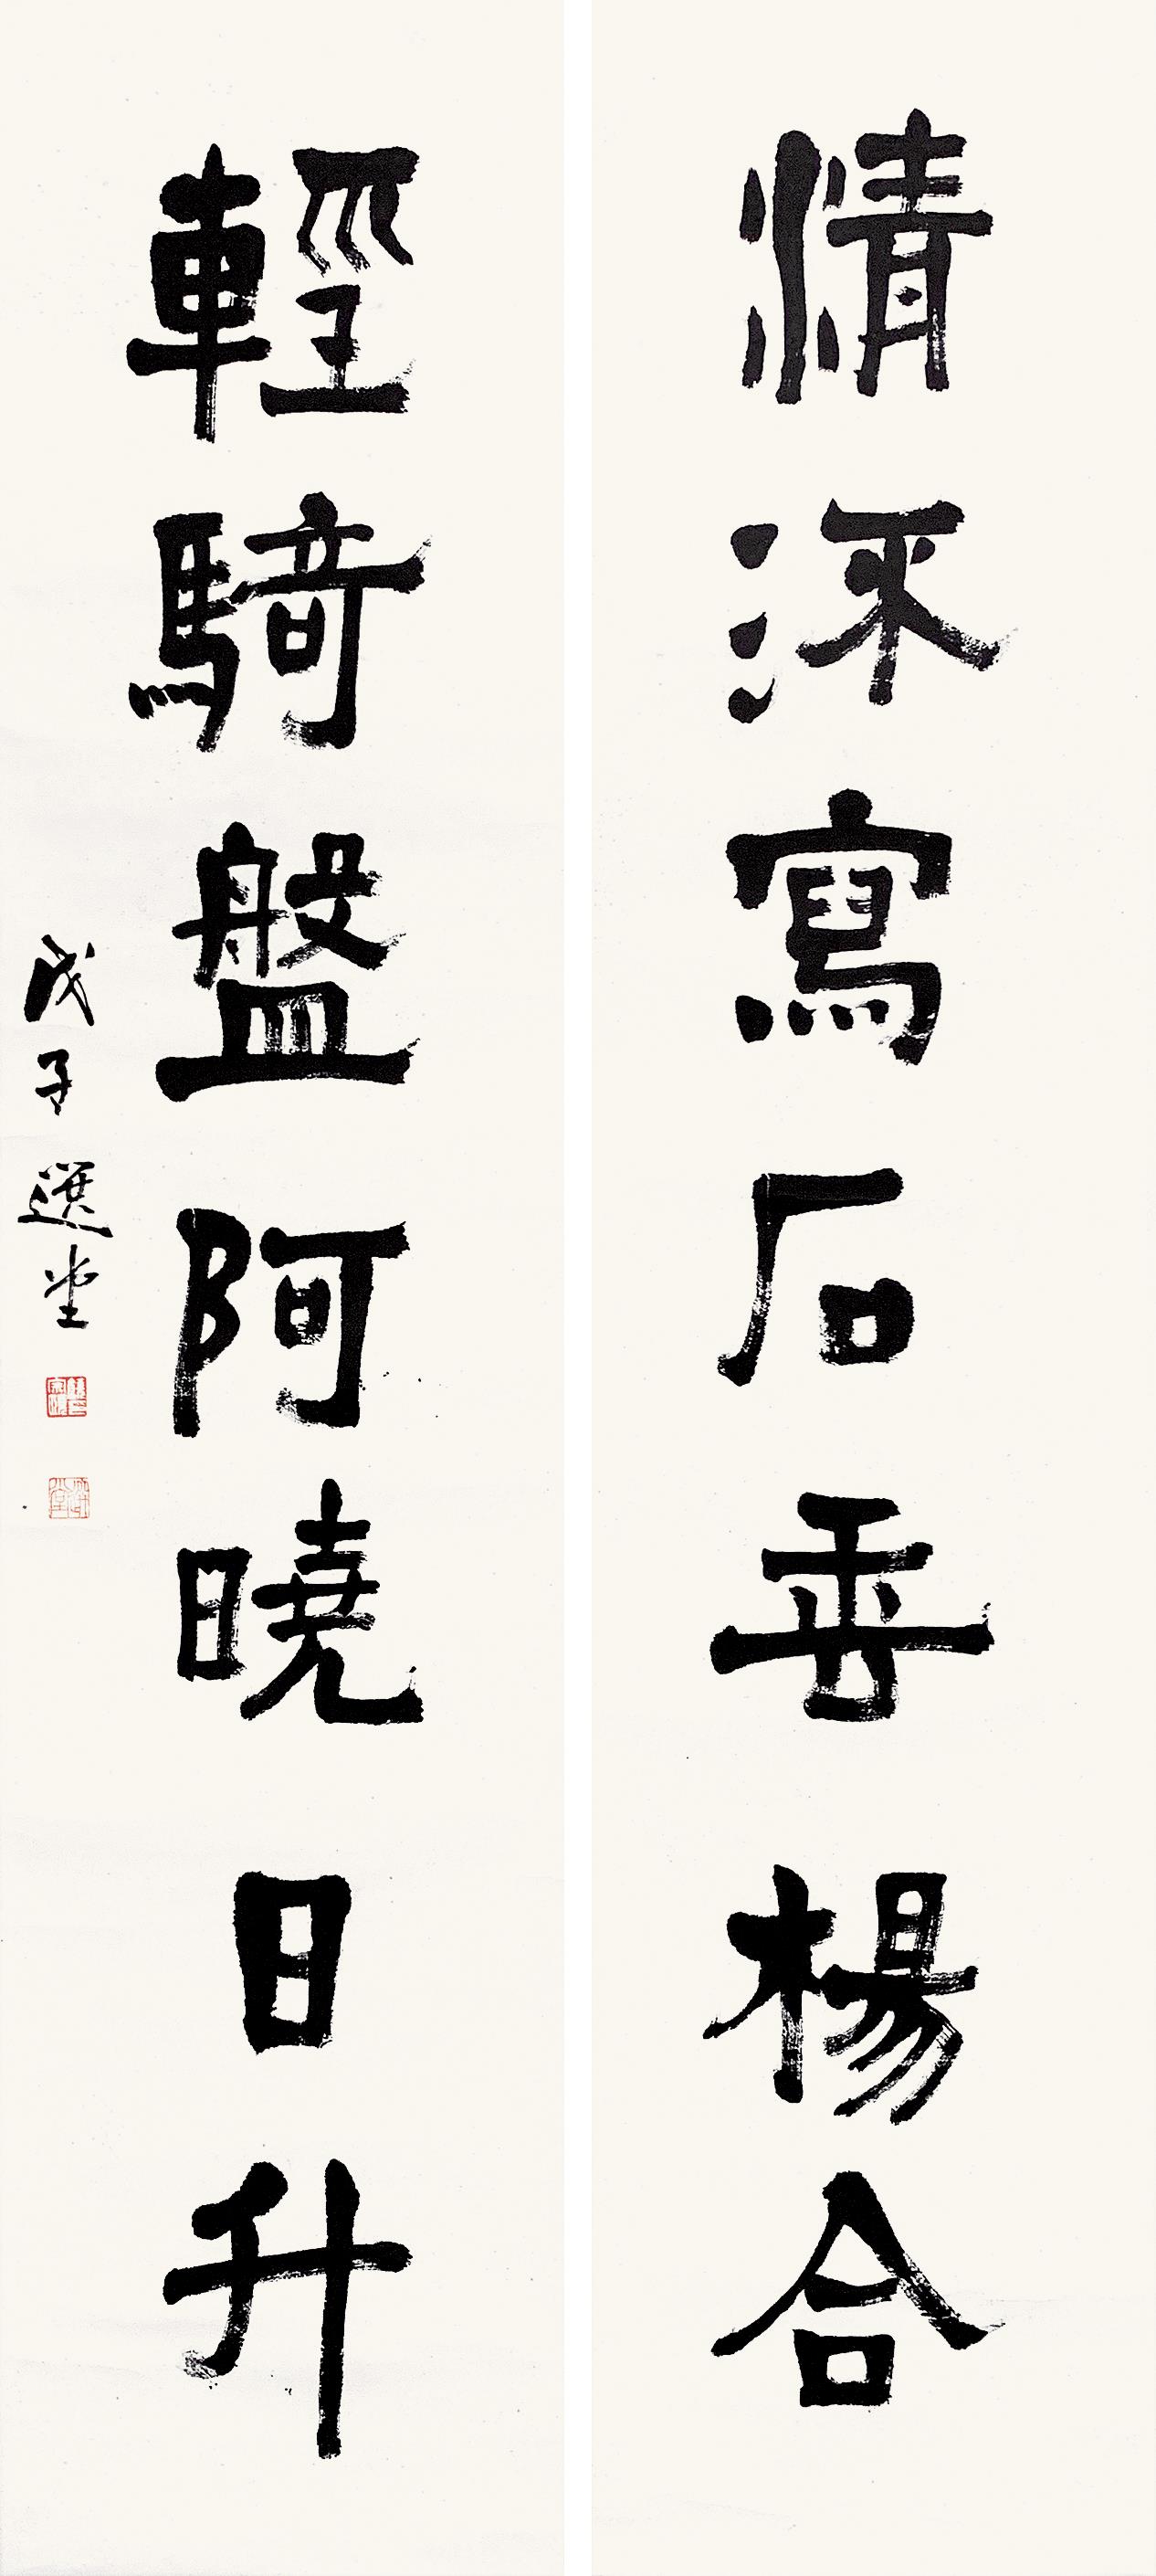 情深寫石垂楊合
輕騎盤阿曉日升
戊子選堂
選堂